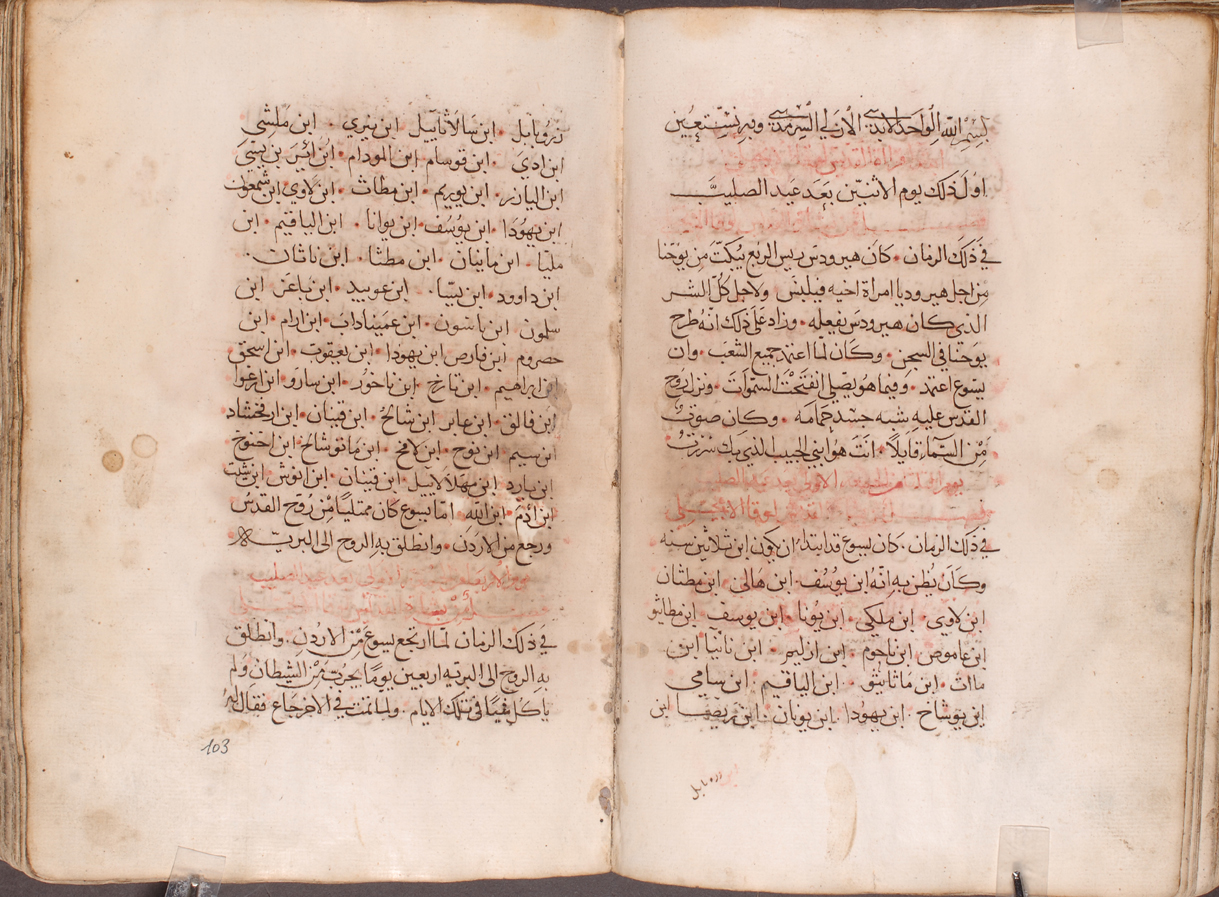 بسم الله الواحد الابدي الازلي السرمدي وبه نستعين
اول ذلك يوم الاثنين بعد عيد الصليب
في ذلك الزمان • كان هيرودس ريس الربع يبكت من يوحنا
من اجل هيروديا امراة اخيه فيلبس ولاجل كل الشر
الذي كان هيرودس يفعله • وزاد على ذلك انه طرح
يوحنا في السجن • وكان لما اعتمد جميع الشعب • وان
يسوع اعتمد • وفيما هو يصلي انفتحت السموات • ونزل روح
القدس عليه شبه جسد حمامه • وكان صوت
من السماء قايلا • انت هو ابني الحبيب الذي بك سررت
يوم الثلثا من الجمعة الاولى بعد عيد الصليب
في ذلك الزمان • كان يسوع قد ابتدا ان يكون ابن ثلاثين سنه
وكان يظن به انه ابن يوسف • ابن هالى • ابن مطثان
ابن لاوي • ابن ملكي • ابن يونا • ابن يوسف • ابن مطاثيو
ابن عاموص ابن ناحوم • ابن ازليم • ابن نانيا ابن
مااث • ابن ماثاثيو • ابن الياقيم • ابن سامي
ابن يوشاخ • ابن يهودا • ابن يونان • ابن ريصا ابن
زروبابل
زروبابل • ابن سالاثاييل ابن نيري • ابن ملشي
ابن ادي • ابن قوسام ابن المودام • ابن ائيس بن يسى
ابن اليازر • ابن يوريم • ابن مطاث • ابن لاوي ابن شمعون
ابن يهودا • ابن يوسف • ابن يوانا • ابن الياقيم • ابن
مليا • ابن ماينان • ابن مطثا • ابن ناثان •
ابن داوود • ابن يسا • ابن عوبيد • ابن باعز ابن
سلمون ابن ناسون • ابن عميناداب • ابن ارام • ابن
حصروم ابن فارص ابن يهودا • ابن يعقوب • ابن اسحق
ابن ابراهيم • ابن تارح • ابن ناحور • ابن سارو • ابن ارغوا
ابن فالق • ابن عابر ابن شالح • ابن قينان • ابن ارفخشاد
ابن سيم ابن نوح • ابن لامخ • ابن ماتوشالح ابن اخنوخ
ابن يارد ابن مهلالاييل • ابن قينان • ابن انوش ابن شيت
ابن ادم ابن الله • اما يسوع كان ممتليا من روح القدس
ورجع من الاردن • وانطلق به الروح الى البريه
في ذلك الزمان لما ارتجع يسوع من الاردن • وانطلق
به الروح الى البريه اربعين يوما يجرب من الشيطان ولم
ياكل شيا في تلك الايام • ولما تمت في الاخر جاع فقال له
103